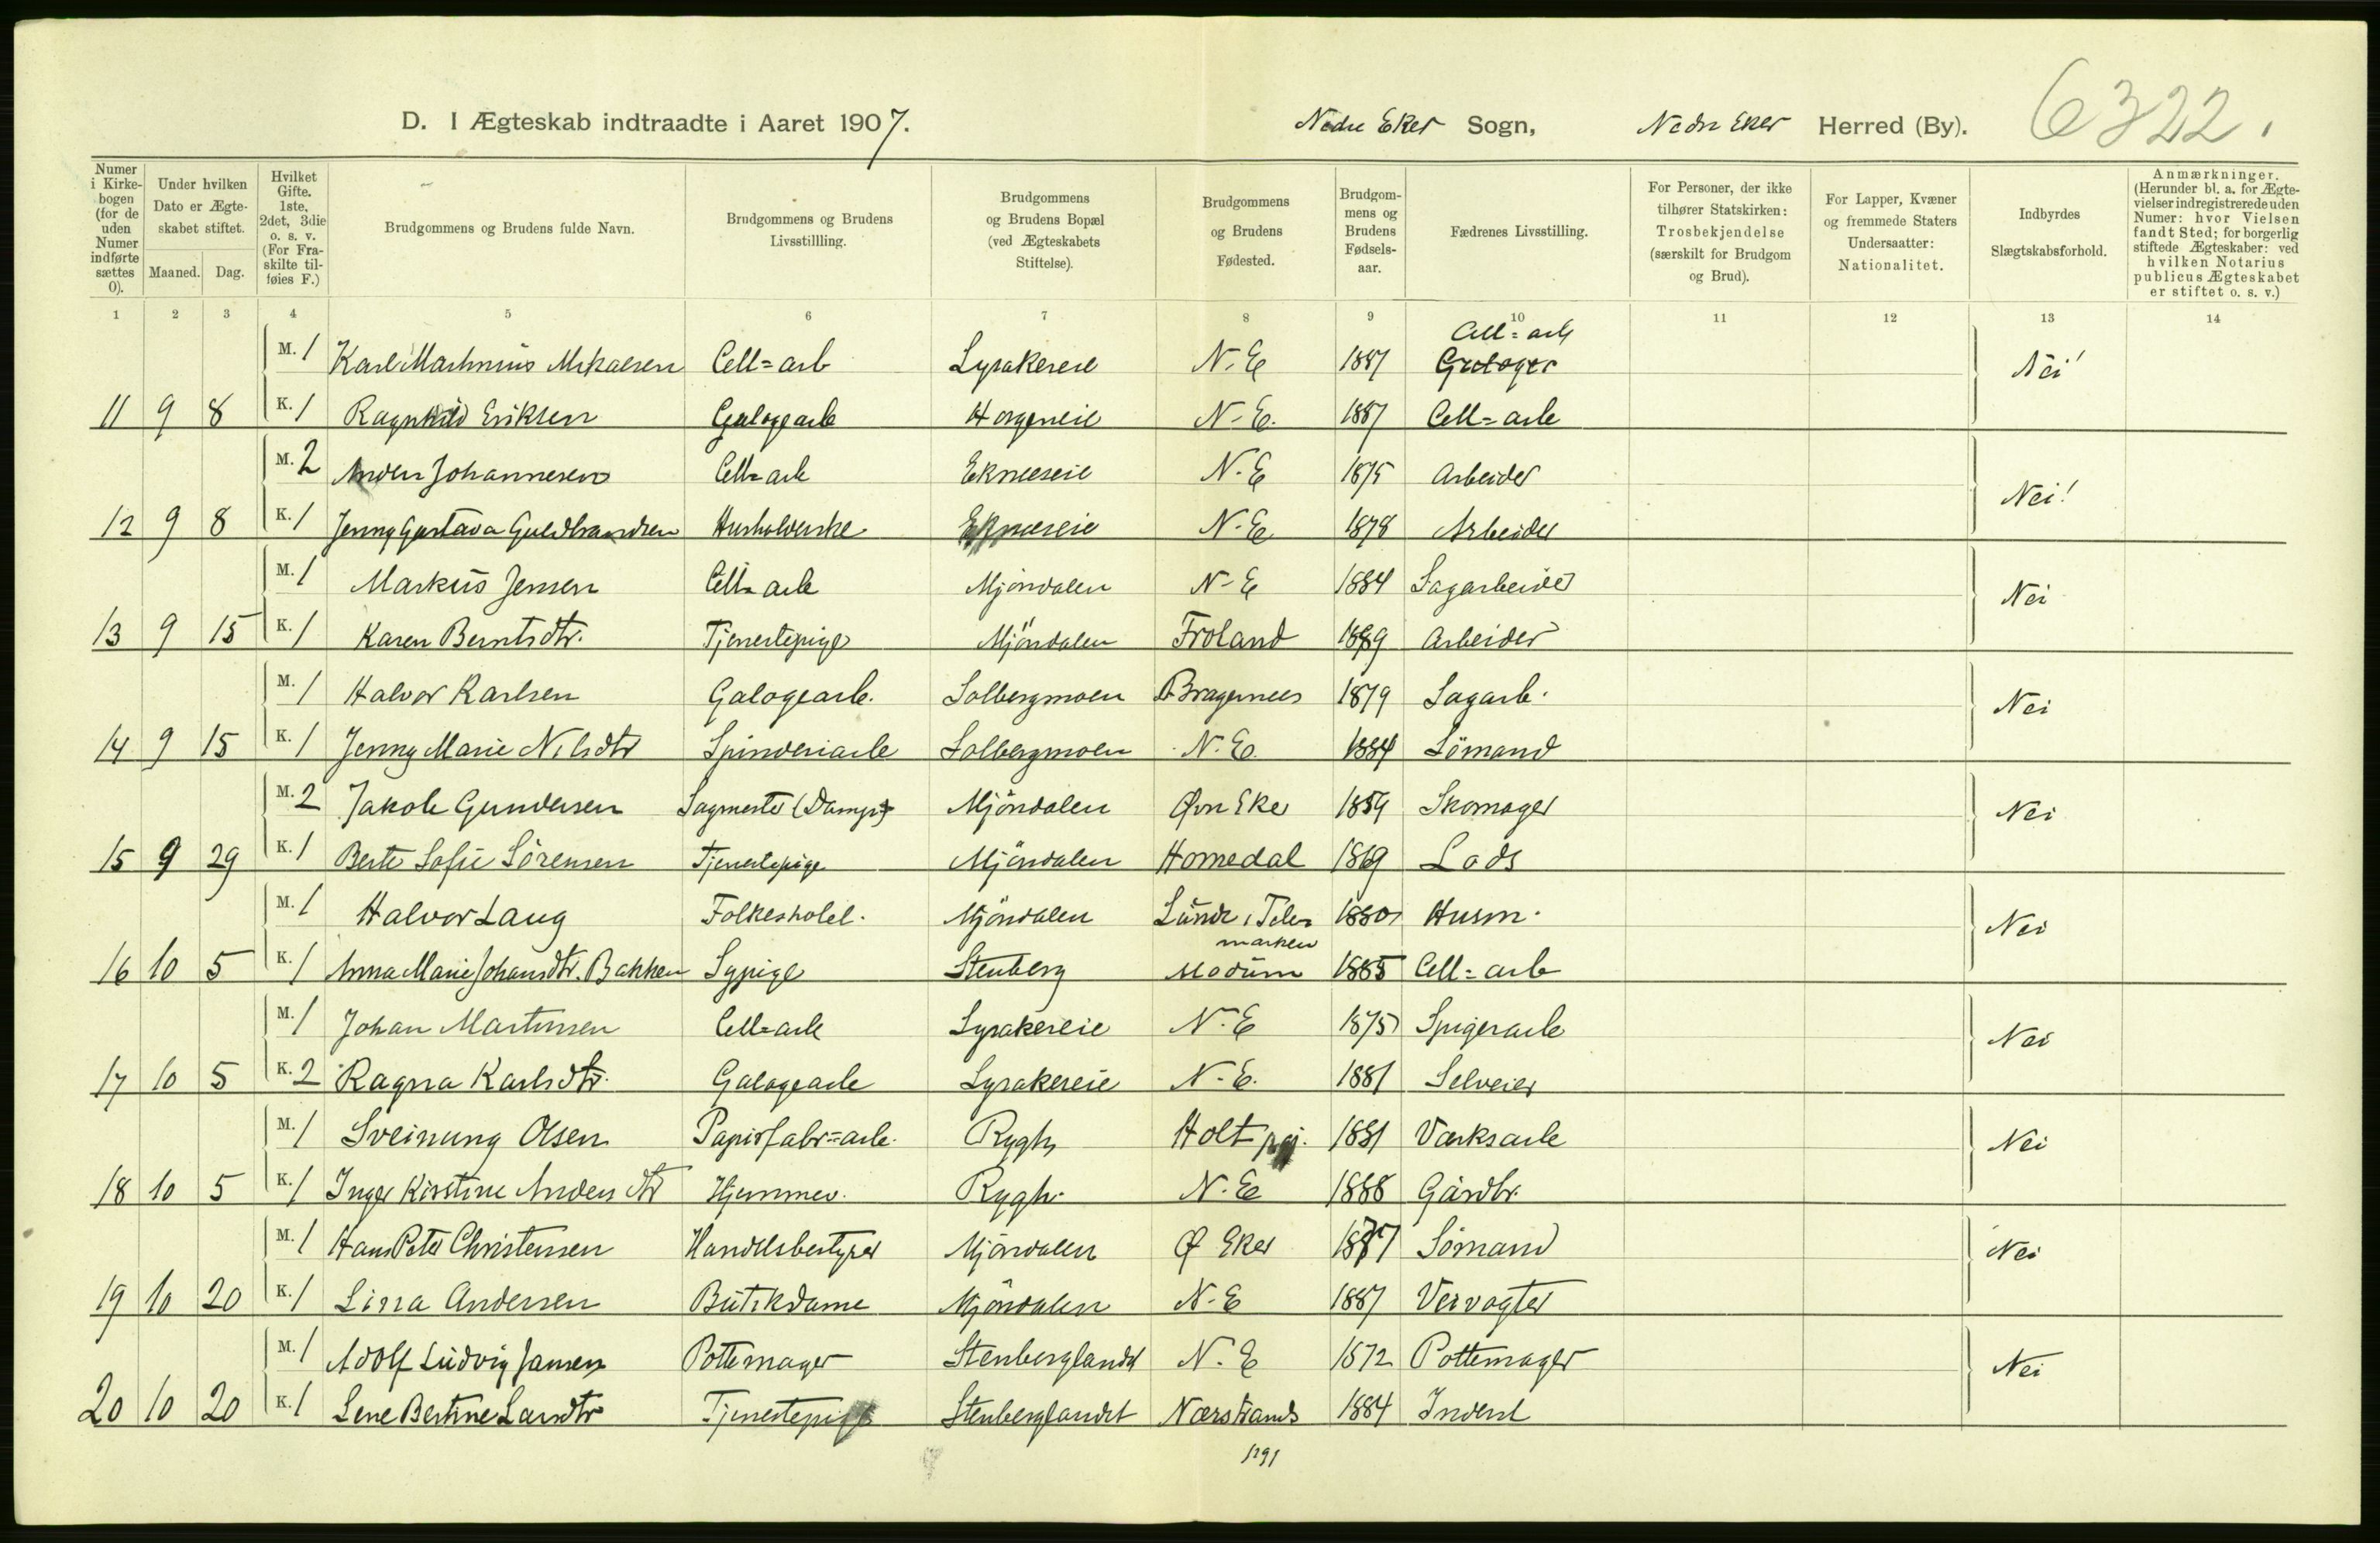 D. I Ægteskab indtraadte i Aaret 1907. Nedre Eker Sogn, Nedre Eker Herred (By). 6322.
Numer i Kirkebogen (for de uden Numer indførte sættes 0).
Under hvilken Dato er Ægteskabet stiftet.
Maaned. Dag.
Hvilket Gifte. 1ste, 2det, 3die o. s. v. (For Fraskilte tilføies F.)
Brudgommens og Brudens fulde Navn.
Brudgommens og Brudens Livsstillling.
Brudgommens og Brudens Bopæl (ved Ægteskabets Stiftelse).
Brudgommens og Brudens Fødested.
Brudgommens og Brudens Fødselsaar.
Fædrenes Livsstilling.
For Personer, der ikke tilhører Statskirken: Trosbekjendelse (særskilt for Brudgom og Brud).
For Lapper, Kvæner og fremmede Staters Undersaatter: Nationalitet.
Indbyrdes Slægtskabsforhold.
Anmærkninger. (Herunder bl. a. for Ægtevielser indregistrerede uden Numer: hvor Vielsen fandt Sted; for borgerlig stiftede Ægteskaber: ved hvilken Notarius publicus Ægteskabet er stiftet o. s. v.)
1 2 3 4 5 6 7 8 9 10 11 12 13 14
Cell=arb
M. 1 Karl Martinius Mikaelsen Cell=arb Lysakereie N.E 1887 Nei!
11 9 8 K. 1 Ragnhild Eriksen Galogearb Horgeneie N.E. 1887 Cell=arb
M. 2 Anders Johannesen Cell=arb Ekneseie N.E 1875 Arbeider Nei!
12 9 8 K. 1 Jenny Gustava Guldbrandsen Husholderske Ekneseie N.E 1878 Arbeider
M. 1 Markus Jensen Cell=arb Mjöndalen N.E 1884 Sagarbeider Nei
13 9 15 K. 1 Karen Berntsdtr. Tjenestepige Mjöndalen Froland Arbeider
M. 1 Halvor Karlsen Galogearb. Solbergmoen Bragernes 1879 Sagarb. Nei
14 9 15 K. 1 Jenny Marie Nilsdtr Spinderiarb Solbergmoen N.E. 1884 Sömand
M. 2 Jakob Gundersen Sagmester (Damps) Mjöndalen Øvn Eker 1859 Skomager Nei
15 9 29 K. 1 Berte Sofie Sörensen Tjenestepige Mjöndalen Homedal 1869 Lods
M. 1 Halvor Laug Folkeshotel. Mjöndalen Lunde i Tele= 1880 Husm. Nei
marken
16 10 5 K. 1 Anna Marie Johansdtr. Bakken Sypige Stenberg Modum 1885 Cell=arb
M. 1 Johan Martinsen Cell=arb Lysakereie N.E 1875 Spigerarb Nei
17 10 5 K. 2 Ragna Karlsdtr. Galogearb Lysakereie N.E. 1881 Selveier
M. 1 Sveinung Olsen Papirfabr=arb. Rygh Holt pgj. 1881 Værksarb Nei
18 10 5 K. 1 Inger Kirstine Andersdtr Hjemmev. Rygh. N.E 1888 Gårdbr.
M. 1 Hans Peter Christensen Handelsbestyrer Mjöndalen Ø Eker 1877 Sömand Nei
19 10 20 K. 1 Lissa Andersen Butikdame Mjöndalen N.E 1887 Veivogter
M. 1 Adolf Ludvig Jansen Pottemager Stenberglandet N.E 1872 Pottemager Nei
20 10 20 K. 1 Lene Bertine Larsdtr Tjenestepige Stenberglandet Nærstrands 1884 Inderst
1291